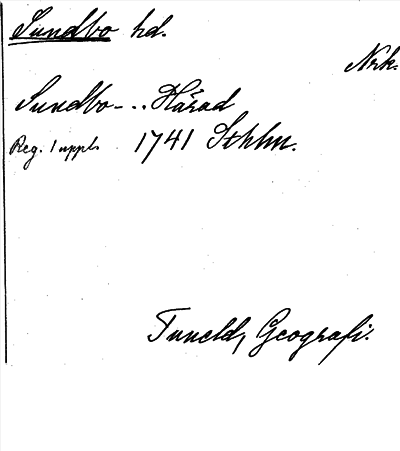 Sundbo hd.
Nrk.
Sundbo- .. Härad
Reg. 1 uppl. 1741 Sthlm.
Tuneld, Geografi.